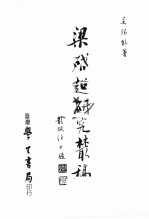 吳銘能著
梁啓超研究叢稿
臺灣
學生書局
印行